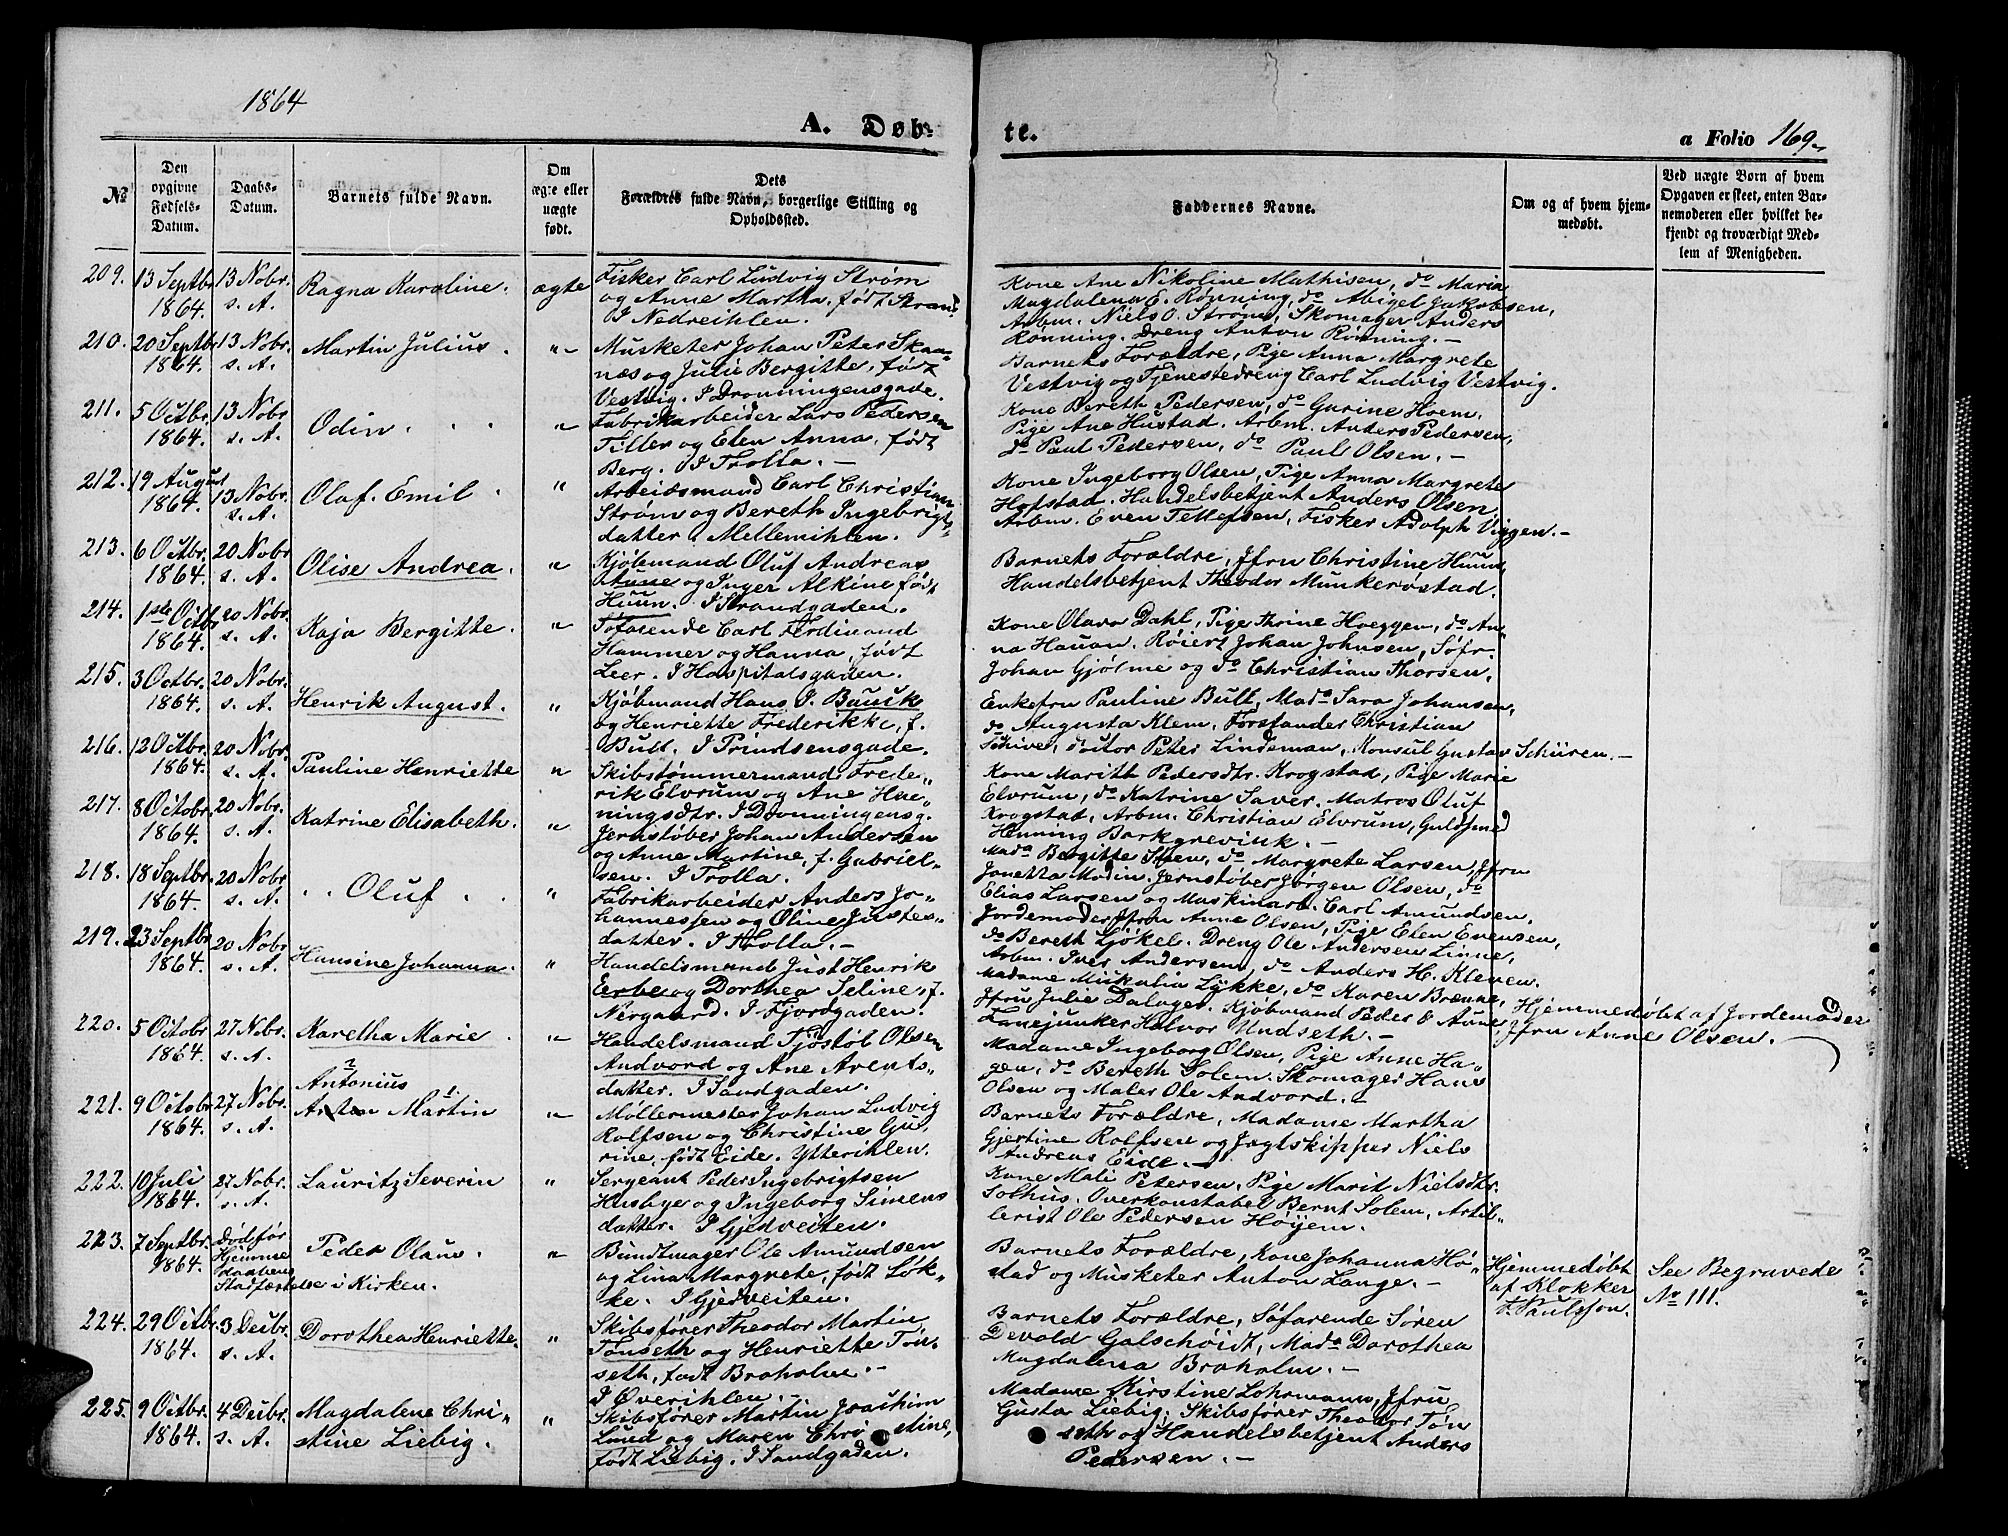 1864
A. Døb-
te.
a Folio 169.
№
Den opgivne Fødsels-Datum.
Daabs-Datum.
Barnets fulde Navn.
Om ægte eller uægte født.
Dets Forældres fulde Navn, borgerlige Stilling og Opholdssted.
Faddernes Navne.
Om og af hvem hjemmedøbt.
Ved uægte Børn af hvem Opgaven er skeet, enten Barnemoderen eller hvilket bekjendt og troværdigt Medlem af Menigheden.
209. 13 Septbr 1864. 13 Nobr. s. A. Ragna Karoline. ægte
Fisker Carl Ludvig Strøm
og Anne Martha, født Strand.
I Nedreihlen.
Kone Ane Nikoline Mathisen, do Maria
Magdalena E. Rønning, do Abigel Jakobsen,
Arbm. Niels O. Strøm, Skomager Anders
Rønning. Dreng Anton Rønning. –
210. 20 Septbr 1864. 13 Nobr. s. A. Martin Julius. "
Musketer Johan Peter Skaa-
næs og Julie Bergitte, født
Vestvig. I Dronningensgade.
Barnets Forældre, Pige Anna Margrete
Vestvig og Tjenestedreng Carl Ludvig Vestvig.
211. 5 Octbr. 1864. 13 Nobr s. A. Odin. "
Fabrikarbeider Lars Pedersen
Tiller og Elen Anna, født
Berg. I Trolla. –
Kone Bereth Pedersen, do Gurine Hoem.
Pige Ane Hustad. Arbm. Anders Pedersen,
do Paul Pedersen, do Paul Olsen. –
212. 19 August 1864. 13 Nobr. s. A. Olaf Emil. "
Arbeidsmand Carl Christian
Strøm og Bereth Ingebrigt-
datter i Mellemihlen.
Kone Ingeborg Olsen, Pige Anna Margrete
Hofstad. Handelsbetjent Anders Olsen
Arbm. Even Tellefsen, Fisker Adolph Viggen. –
213. 6 Octbr. 1864. 20 Nobr s. A. Olise Andrea. "
Kjøbmand Oluf Andreas
Aune og Inger Alkine født
Huun. I Strandgaden.
Barnets Forældre, Jfru Christine Huun,
Handelsbetjent Theodor Munkerøstad.
214. 1ste Octbr 1864. 20 Nobr. s. A. Kaja Bergitte. "
Søfarende Carl Ferdinand
Hammer og Hanna, født
Leer. I Hospitalsgaden.
Kone Olava Dahl, Pige Thrine Hoeggen, do An-
na Hauan. Røiert Johan Johnsen, Søfr.
Johan Gjølme og do Christian Thorsen.
215. 3 Octbr. 1864. 20 Nobr. s. A. Henrik August. "
Kjøbmand Hans J. Bauck
og Henriette Frederikke, f.
Bull. I Prindsensgade.
Enkefru Pauline Bull, Mada Sara Johansen,
do Augusta Klem, Forstander Christian
Schive, doctor Peter Lindeman, Konsul Gustav Schüren. –
216. 12 Octbr. 1864. 20 Nobr. s. A. Pauline Henriette "
Skibstømmermand Frede-
rik Elvrum og Ane Hen-
ningsdtr. I Dronningensg.
Kone Marith Pedersdtr. Krogstad, Pige Marie
Elvrum, do Katrine Saver. Matros Oluf
Krogstad, Arbm. Christian Elvrum, Guldsmed
Henning Barkgrevink. –
217. 8 Octobr. 1864. 20 Nobr. s. A. Katrine Elisabeth. "
Jernstøber Johan Andersen
og Anne Martine, f. Gabriel-
sen. I Trolla.
Mada Bergitte Steen, do Margrete Larsen, Jfru
Jonetta Modin. Jernstøber Jørgen Olsen, do
Elias Larsen og Maskinarb. Carl Amundsen.
218. 18 Septbr. 1864. 20 Nobr s. A. Oluf. "
Fabrikarbeider Anders Jo-
hannessen og Oline Justes-
datter. I Trolla. –
Jordemoder Jfru Anne Olsen, Pige Elen Evensen,
do Bereth Ljøkel. Dreng Ole Andersen Linne,
Arbm. Iver Andersen, do Anders H. Kleven.
219. 23 Septbr. 1864. 20 Nobr s. A. Hansine Johanna. "
Handelsmand Just Henrik
Erbe og Dorthea Seline, f.
Nergaard. I Fjordgaden.
Madame Mikalia Lykke, do Karen Brenne,
Jfru Julie Dalager. Kjøbmand Peder O Aune,
Fanejunker Halvor Undseth. –
220. 5 Octobr 1864. 27 Nobr. s. A. Karetha Marie. "
Handelsmand Tjøstøl Olsen
Andvord og Ane Arents-
datter. I Sandgaden.
Madame Ingeborg Olsen, Pige Anne Ha-
gen, do Bereth Solem. Skomager Hans
Olsen og Maler Ole Andvord. –
Hjemmedøbt af Jordemoder
Jfru Anne Olsen. –
221. 9 Octobr 1864. 27 Nobr. s. A. Antonius Anton Martin "
Møllermester Johan Ludvig
Rolfsen og Christine Gu-
rine, født Eide. Ytterihlen.
Barnets Forældre, Madame Martha
Gjertine Rolfsen og Jagtskipper Niels
Andreas Eide. –
222. 10 Juli 1864. 27 Nobr. s. A. Lauritz Severin "
Sergeant Peder Ingebrigtsen
Husbye og Ingeborg Simens
datter. I Gjedveiten.
Kone Mali Petersen, Pige Marit Nielsdtr.
Solhus. Overkonstabel Bernt Solem, Artil-
lerist Ole Pedersen Høijem.
223. 7 Septbr. 1864. Død før Hjemmedaabens Stadfæstelse i Kirken. Peder Olaus. "
Bundtmager Ole Amundsen
og Lina Margrete, født Løk-
ke. I Gjedveiten.
Barnets Forældre, Kone Johanna Hø-
stad og Musketer Anton Lange. –
Hjemmedøbt
af Klokker
F. Paulsson.
See Begravede
No 111.
224. 29 Octbr. 1864. 3 Decbr. s. A. Dorothea Henriette. "
Skibsfører Theodor Martin
Tønseth og Henriette Tøn-
seth, født Broholm. –
I Øverihlen. –
Barnets Forældre, Søfarende Søren
Devold Galschøidt, Mada Dorothea
Magdalena Broholm. –
225. 9 Octbr. 1864. 4 Decbr. s. A. Magdalene Chri-
stine Liebig. "
Skibsfører Martin Joachim
Lund og Maren Chri stine,
født Liebig. I Sandgaden.
Madame Kirstine Lohrmann, Jfru
Gusta Liebig. Skibsfører Theodor Tøn
seth og Handelsbetjent Anders
Pedersen. –